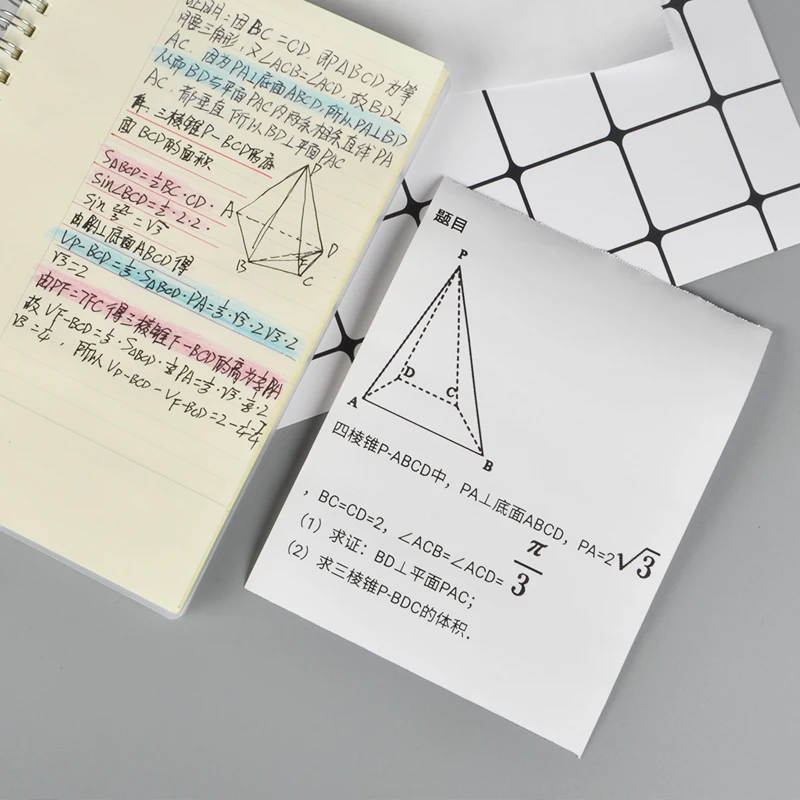 证明:因BC=CD,即△BCD为等
腰三角形,又∠ACB=∠ACD,故BD⊥
AC.因为PA⊥底面ABCD,所以PA⊥BD
从而BD与平面PAC内两条相交直线PA
AC.都垂直所以BD⊥平面PAC
解.三棱锥P-BCD的底
面BCD的面积
S△BCD=½BC·CD·
sin∠BCD=½·2·2·
=√3
由PA⊥底面ABCD得
VP-BCD=⅓·S△BCD·PA=⅓·√3·2√3·2
√3=2
由PF=7FC得三棱锥F-BCD的高为⅛PA
故VF-BCD=⅓·S△BCD·⅛PA=⅓·√3·⅛·2
√3=¼,所以VP-BCD-VF-BCD=2-¼
P
A
B
C
D
题目
P
D
C
A
B
四棱锥P-ABCD中,PA⊥底面ABCD,PA=2√3
,BC=CD=2,∠ACB=∠ACD=π/3
(1) 求证:BD⊥平面PAC;
(2) 求三棱锥P-BDC的体积.